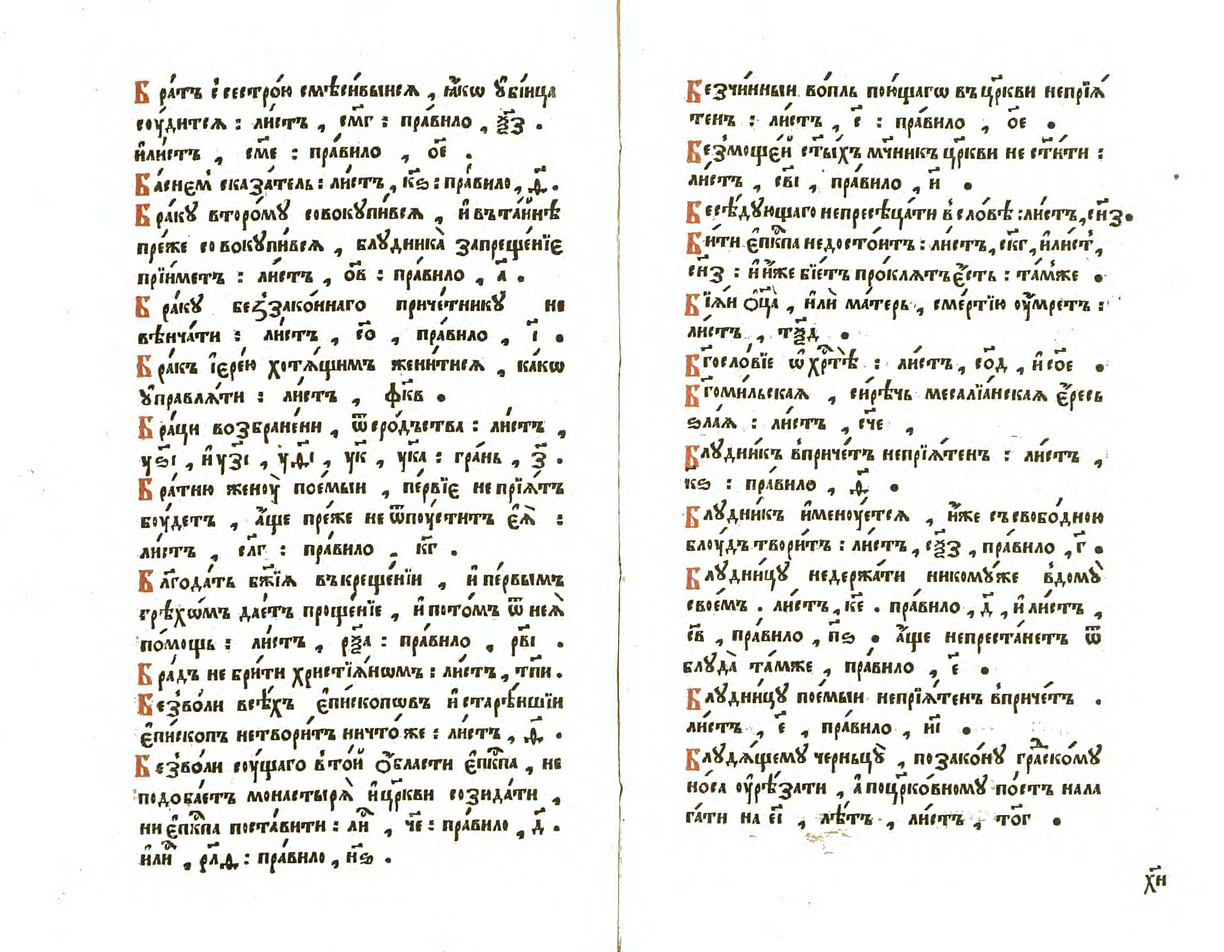 Бра́тъ с̾сестро́ю смѣси́выисѧ , ꙗ҆́кѡ ᲂу҆бі́ица
сꙋ́дитсѧ : ли́стъ , см҃г : пра́вило , ѯ҃з .
и҆ли́стъ , см҃е : пра́вило , о҃е .
Ба́снемъ сказа́тель : ли́стъ , к҃ѕ : пра́вило , д҃ .
Бра́кꙋ второ́мꙋ совокꙋпи́всѧ , и҆ в та́инѣ
пре́же совокꙋпи́всѧ , блꙋдника̀ запреще́нїе
прїи́метъ : ли́стъ , о҃в : пра́вило , а҃ .
Бра́кꙋ беззако́ннаго приче́тникꙋ не
вѣнча́ти : ли́стъ , с҃о , пра́вило , і҃ .
Бра́къ і҆ере́ю хотѧ́щимъ жени́тисѧ , ка́кѡ
ᲂу҆правлѧ́ти : ли́стъ , фк҃в .
Бра́ци возбране́ни , ѿ сро́дъства : ли́стъ ,
у҃ѕі , и҆ у҃зі , у҃ді , у҃к , у҃ка : гра́нь , з҃ .
Бра́тню женꙋ̀ пое́мыи , пе́рвїе не прїѧ́тъ
бꙋ́детъ , а҆́ще пре́же не ѿпꙋ́ститъ є҆ѧ̀ :
ли́стъ , сл҃г : пра́вило . к҃г .
Бл҃года́ть бж҃їѧ въ креще́нїи , и҆ пе́рвымъ
грѣхѡ́мъ дае́тъ проще́нїе , и҆ пото́мъ ѿ неѧ̀
по́мощь : ли́стъ , рѯ҃а : пра́вило , рв҃і .
Бра́дъ не бри́ти христїѧ́нѡмъ : ли́стъ , тп҃и .
Безво́ли всѣ́хъ є҆пи́скопѡвъ и҆ старѣ́ишїи
є҆пи́скопъ нетвори́тъ ничто́же : ли́стъ , д҃ .
Безво́ли сꙋ́щаго в то́й ѻ҆́бласти є҆пⷭ҇кпа , не
подоба́етъ монастырѧ̀ и҆ цр҃кви созида́ти ,
ни є҆пⷭ҇кпа поста́вити : лиⷭ҇ , ч҃е : пра́вило , д҃ .
и҆лиⷭ҇ , рл҃д : пра́вило , н҃ѕ .
Безчи́нныи во́пль пою́щагѡ въ цр҃кви непрїѧ́
тенъ : ли́стъ , с҃ : пра́вило , о҃е .
Безмоще́й ст҃ы́хъ мч҃никъ цр҃кви не ст҃и́ти :
ли́стъ , св҃і , пра́вило , и҃ .
Бесѣ́дꙋющаго непресѣца́ти в сло́вѣ : ли́стъ , сн҃з .
Би́ти є҆пⷭ҇кпа недосто́итъ : ли́стъ , ск҃г , и҆ли́ст ,
сн҃з : и҆ и҆́же бїе́тъ про́клѧтъ є҆́сть : та́мже .
Бїѧ́и ѻ҆ц҃а̀ , и҆лѝ ма́терь , сме́ртїю ᲂу҆́мретъ :
ли́стъ , тѯ҃д .
Бг҃осло́вїе ѡ҆ хрⷭ҇тѣ̀ : ли́стъ , со҃д , и҆ со҃е .
Бг҃оми́льскаѧ , си́рѣчь месалїа́нскаѧ є҆́ресь
ѕла́ѧ : ли́стъ , сч҃е ,
Блꙋдни́къ в приче́тъ непрїѧ́тенъ : ли́стъ ,
к҃ѕ : пра́вило , д҃ .
Блꙋдни́къ и҆менꙋ́етсѧ , и҆́же съ свобо́дною
блꙋ́дъ твори́тъ : ли́стъ , сѯ҃з , пра́вило , г҃ .
Блꙋдни́цꙋ недержа́ти никомꙋ́же в домꙋ̀
свое́мъ . ли́стъ , к҃е . пра́вило , д҃ , и҆ ли́стъ ,
с҃в , пра́вило , п҃ѕ . а҆́ще непреста́нетъ ѿ
блꙋда̀ та́мже , пра́вило , е҃ .
Блꙋдни́цꙋ пое́мыи непрїѧ́тенъ в приче́тъ .
ли́стъ , е҃ , пра́вило , и҃і .
Блꙋдѧ́щемꙋ черньцꙋ̀ , по зако́нꙋ граⷣско́мꙋ
но́са ᲂу҆рѣ́зати , а҆ по цр҃ко́вномꙋ по́стъ нала
га́ти на е҃і , лѣ́тъ , ли́стъ , то҃г .
х҃н